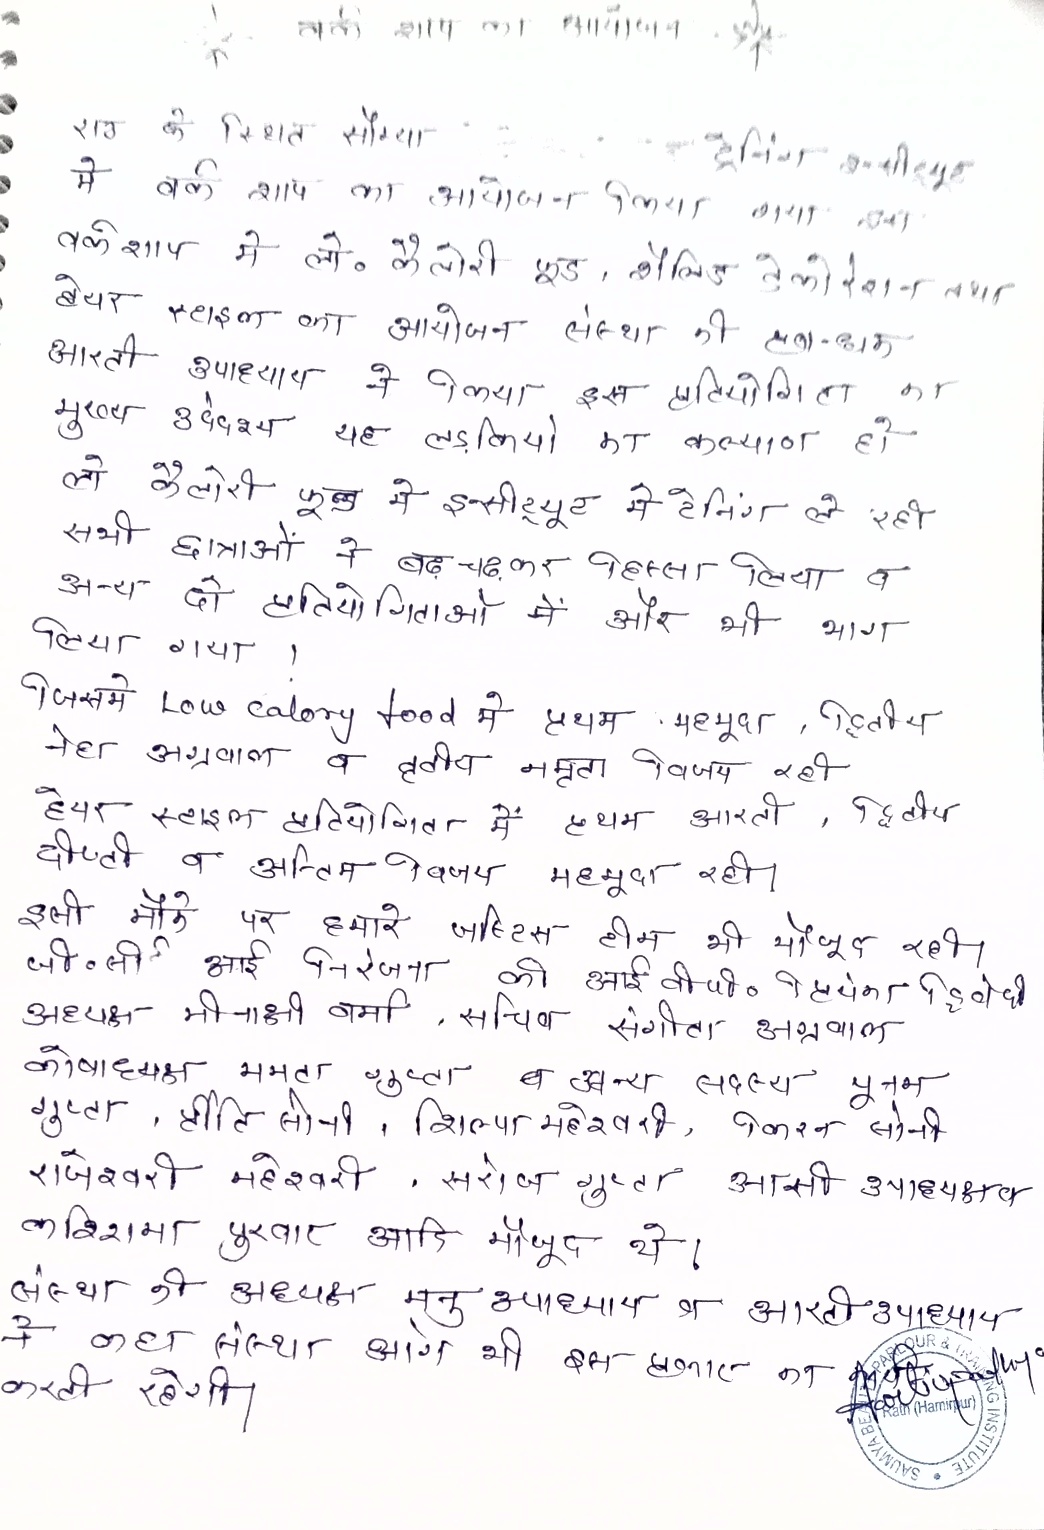 वर्क शाप का आयोजन
राठ के स्थित सौम्या ट्रेनिंग इन्सीट्यूट
मे वर्क शाप का आयोजन किया गया इस
वर्कशाप मे लो० कैलोरी फूड, डेकोरेशन तथा
हेयर स्टाइल का आयोजन संस्था की
आरती उपाध्याय ने किया इस प्रतियोगिता का
मुख्य उद्देश्य यह लड़कियो का कल्याण हो
लो कैलोरी फूड मे इन्सीट्यूट मे टेनिंग ले रही
सभी छात्राओं ने बढ़-चढ़कर हिस्सा लिया व
अन्य दो प्रतियोगिताओं में और भी भाग
लिया गया !
जिसमे Low calory food मे प्रथम महमूदा, द्वितीय
नेहा अग्रवाल व तृतीय नमृता विजय रही
हेयर स्टाइल प्रतियोगिता में प्रथम आरती, द्वितीय
दीप्ती व अन्तिम विजय महमूदा रही।
इसी मौके पर हमारे जस्टिस टीम भी मौजूद रही।
आई निरंजना की आई वी०पी० प्रियंका द्विवेदी
अध्यक्ष मीनाक्षी वर्मा, सचिव संगीता अग्रवाल
कोषाध्यक्ष ममता गुप्ता व अन्य सदस्य पूनम
गुप्ता, प्रीति सोनी, शिल्पा महेश्वरी, किरन सोनी
राजेश्वरी महेश्वरी, सरोज गुप्ता उपाध्यक्ष व
करिशमा पुरवार आदि मौजूद थे।
संस्था की अध्यक्ष मनु उपाध्याय व आरती उपाध्याय
ने कहा संस्था आगे भी इस प्रकार का
करती रहेगी।
SAUMYA BEAUTY PARLOUR & TRAINING INSTITUTE
Rath (Hamirpur)